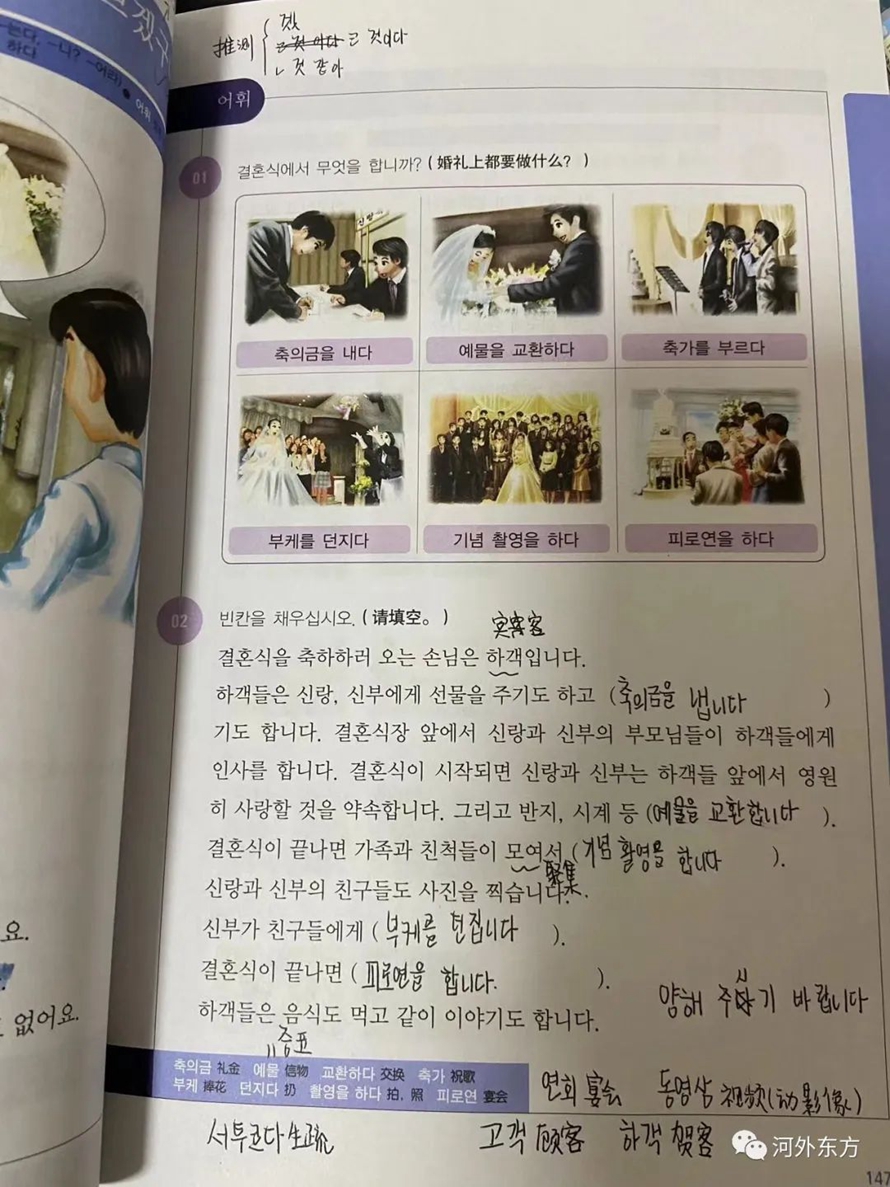 겠
推测 ㄹ 것이다
ㄴ 것 같아
어휘
01 결혼식에서 무엇을 합니까? (婚礼上都要做什么? )
축의금을 내다 예물을 교환하다 축가를 부르다
부케를 던지다 기념 촬영을 하다 피로연을 하다
02 빈칸을 채우십시오. (请填空。)
宾客
결혼식을 축하하러 오는 손님은 하객입니다.
하객들은 신랑, 신부에게 선물을 주기도 하고 (축의금을 냅니다 )
기도 합니다. 결혼식장 앞에서 신랑과 신부의 부모님들이 하객들에게
인사를 합니다. 결혼식이 시작되면 신랑과 신부는 하객들 앞에서 영원
히 사랑할 것을 약속합니다. 그리고 반지, 시계 등 (예물을 교환합니다 ).
결혼식이 끝나면 가족과 친척들이 모여서 (기념 촬영을 합니다 ).
聚集
신랑과 신부의 친구들도 사진을 찍습니다.
신부가 친구들에게 (부케를 던집니다 ).
결혼식이 끝나면 (피로연을 합니다. ).
하객들은 음식도 먹고 같이 이야기도 합니다.
양해 주시기 바랍니다
축의금 礼金 예물 信物 교환하다 交换 축가 祝歌
부케 捧花 던지다 扔 촬영을 하다 拍, 照 피로연 宴会
연회 宴会 동영상 视频(动影像)
서투르다 生疏 고객 顾客 하객 贺客
요.
없어요.
河外东方
147